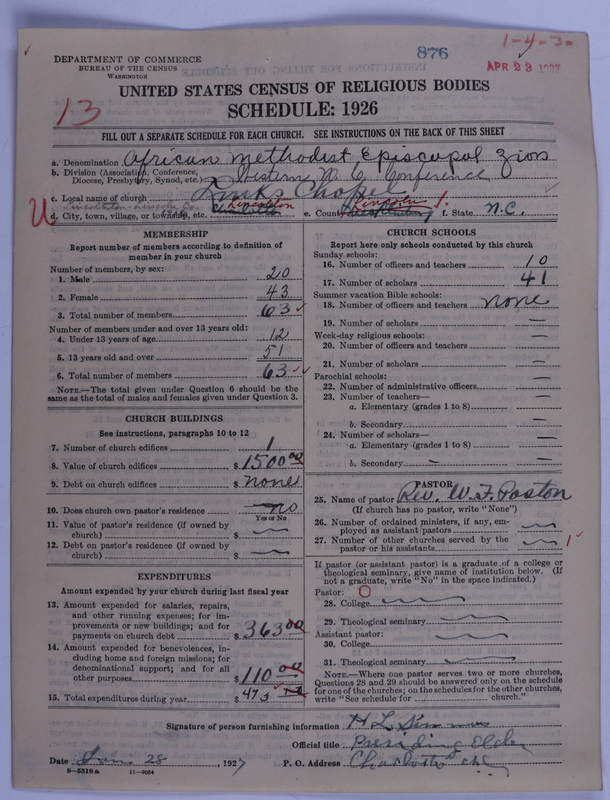 876
1-4-3-
APR 23 1927
DEPARTMENT OF COMMERCE
BUREAU OF THE CENSUS
WASHINGTON
13
UNITED STATES CENSUS OF RELIGIOUS BODIES
SCHEDULE: 1926
FILL OUT A SEPARATE SCHEDULE FOR EACH CHURCH. SEE INSTRUCTIONS ON THE BACK OF THIS SHEET
a. Denomination African Methodist Episcopal Zion
b. Division (Association, Conference, Diocese, Presbytery, Synod, etc.) Western N.C. Conference
c. Local name of church Chapel
U
d. City, town, village, or township, etc. Lincolnton e. County Lincoln f. State N.C.
MEMBERSHIP
Report number of members according to definition of
member in your church
Number of members, by sex:
1. Male 20
2. Female 43
3. Total number of members 63 ✓
Number of members under and over 13 years old:
4. Under 13 years of age 12
5. 13 years old and over 51
6. Total number of members 63 ✓✓
NOTE.—The total given under Question 6 should be
same as the total of males and females given under Question 3.
CHURCH BUILDINGS
See instructions, paragraphs 10 to 12
7. Number of church edifices 1
8. Value of church edifices $ 1500 00
9. Debt on church edifices $ none
10. Does church own pastor's residence no
Yes or No
11. Value of pastor's residence (if owned by
church) $
12. Debt on pastor's residence (if owned by
church) $
EXPENDITURES
Amount expended by your church during last fiscal year
13. Amount expended for salaries, repairs,
and other running expenses; for im-
provements or new buildings; and for
payments on church debt $ 363 00
14. Amount expended for benevolences, in-
cluding home and foreign missions; for
denominational support; and for all
other purposes $ 110 00
15. Total expenditures during year $ 473
CHURCH SCHOOLS
Report here only schools conducted by this church
Sunday schools:
16. Number of officers and teachers 10
17. Number of scholars 41
Summer vacation Bible schools:
18. Number of officers and teachers none
19. Number of scholars —
Week-day religious schools:
20. Number of officers and teachers —
21. Number of scholars —
Parochial schools:
22. Number of administrative officers —
23. Number of teachers—
a. Elementary (grades 1 to 8) —
b. Secondary —
24. Number of scholars—
a. Elementary (grades 1 to 8) —
b. Secondary —
PASTOR
25. Name of pastor Rev. W. F. Paston
(If church has no pastor, write "None")
26. Number of ordained ministers, if any, em-
ployed as assistant pastors
27. Number of other churches served by the
pastor or his assistants 1 ✓
If pastor (or assistant pastor) is a graduate of a college or
theological seminary, give name of institution below. (If
not a graduate, write "No" in the space indicated.)
Pastor: O
28. College
29. Theological seminary
Assistant pastor:
30. College
31. Theological seminary
NOTE.—Where one pastor serves two or more churches,
Questions 28 and 29 should be answered only on the schedule
for one of the churches; on the schedules for the other churches,
write "See schedule for church."
Signature of person furnishing information H L
Official title Presiding Elder
Date Jan 28, 1927 P. O. Address Charlotte NC
8—5518 a 11—9024